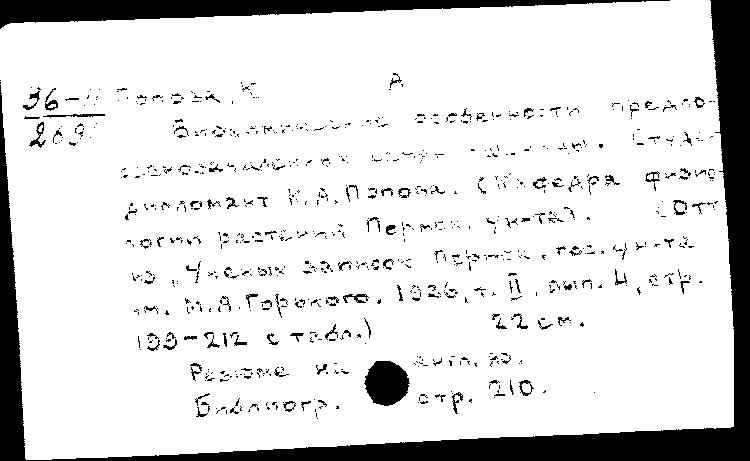 А
36-II Попова, К
Биохимические особенности предпо-
. Студент
дипломант К.А.Попова. (Кафедра физио-
логии растений Пермск. ун-та). (Отт.
из „Ученых записок Пермск. гос. ун-та
им. М.А.Горького. 1936, т. II, вып. 4, стр.
199-212 с табл.) 22 см.
Резюме на англ. яз.
Библиогр. стр. 210.